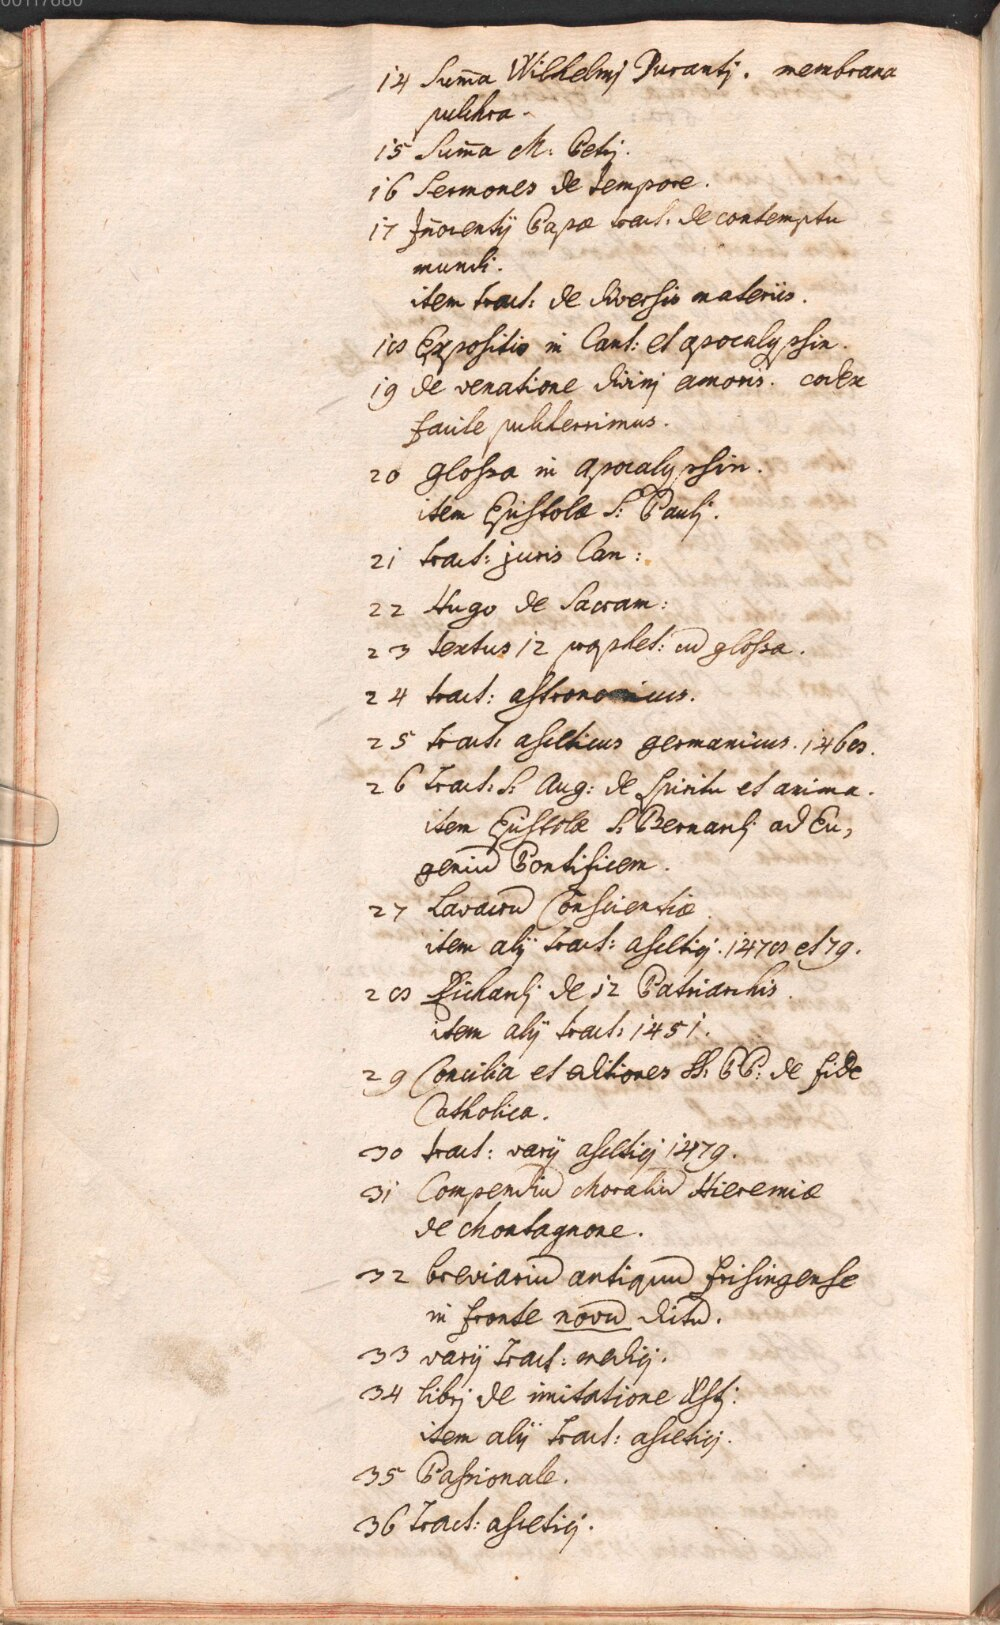 00117680
14 Sum̄a Wilhelmj Durantj. membrana
pulchra.
15 Sum̄a M. Petrj.
16 Sermones de tempore.
17 Iñocentij Papæ tract: de contemptu
mundi.
item tract: de diversis materiis.
18 Expositio in Cant: et apocalypsin.
19 de venatione divinj amoris. codex
facile pulcherrimus.
20 glossa in apocalypsin.
item Epistolæ S: Paulj.
21 tract: juris Can:
22 Hugo de Sacram:
23 textus 12 prophet: cū glossa.
24 tract: astronomicus.
25 tract: asceticus germanicus. 1468.
26 Tract: S. Aug: de spiritu et anima.
item Epistolæ S. Bernardj ad Eu,
geniū Pontificem.
27 Lavacrū Conscientiæ
item alij tract: ascetici. 1478 et 79.
28 Richardj de 12 Patriarchis.
item alij tract: 1451.
29 Concilia et editiones SS. PP: de fide
Catholica.
30 tract: varij ascetici 1479.
31 Compendiū Moraliū Hieremiæ
de Montagnone.
32 breviariū antiquū frisingense
in fronte novū dictū.
33 varij Tract: medici.
34 libri de imitatione Xstj:
item alij Tract: ascetici.
35 Passionale.
36 Tract: ascetici.